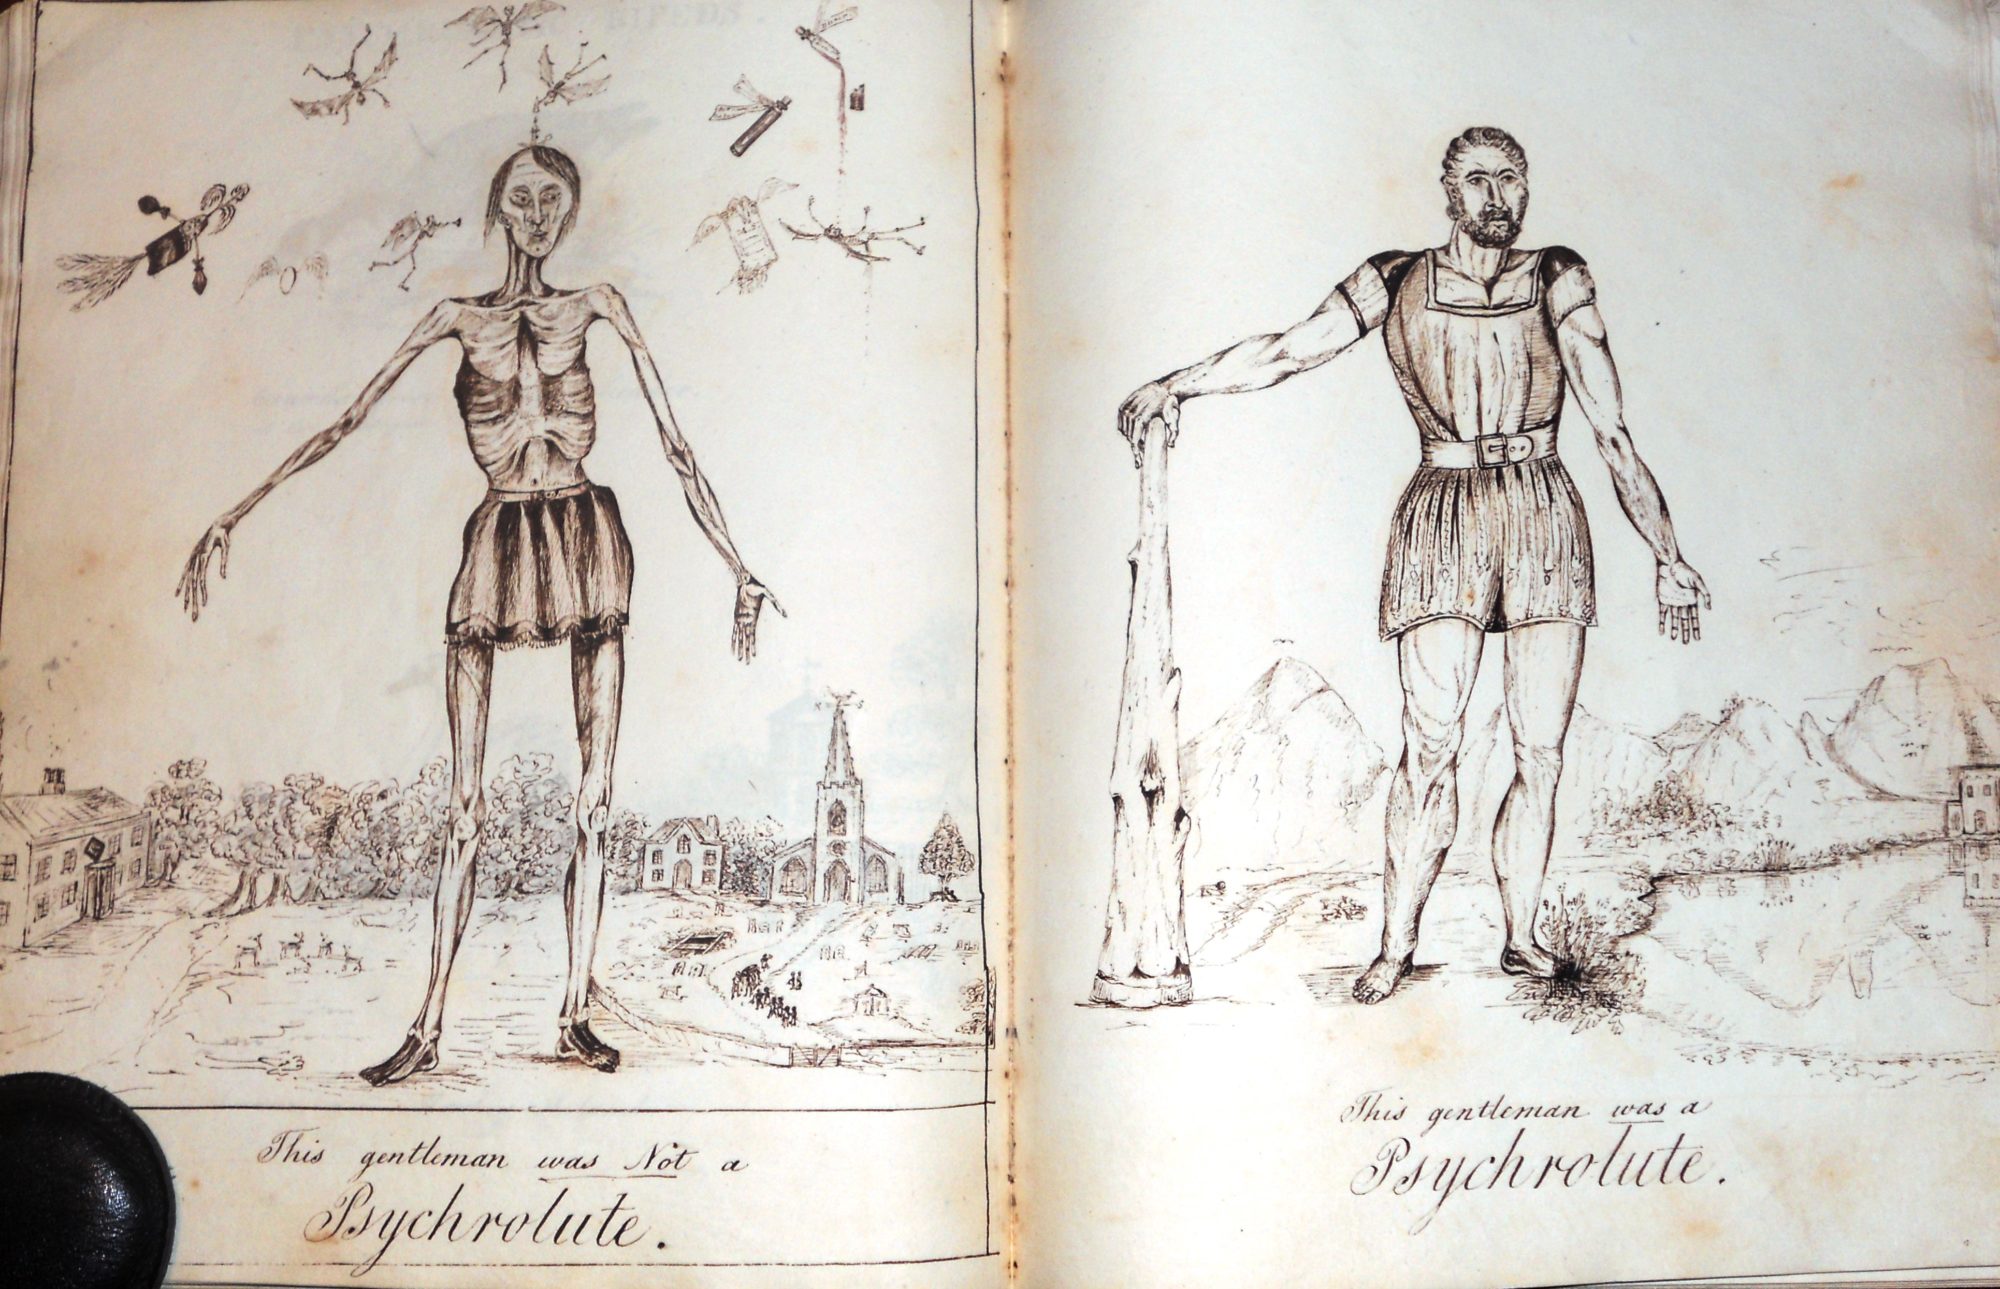 This gentleman was Not a
Psychrolute.
This gentleman was a
Psychrolute.